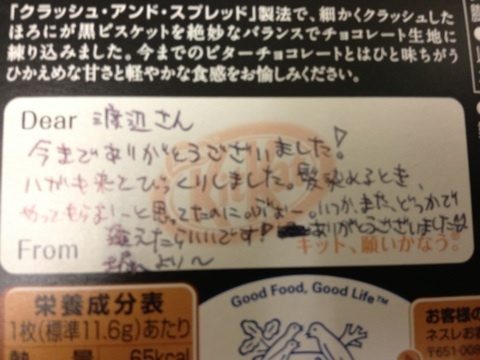 「クラッシュ・アンド・スプレッド」製法で、細かくクラッシュした
ほろにが黒ビスケットを絶妙なバランスでチョコレート生地に
練り込みました。今までのビターチョコレートとはひと味ちがう
ひかえめな甘さと軽やかな食感をお愉しみください。
Dear 渡辺さん
今までありがとうございました!
ハガキ来てびっくりしました。髪染めるとき、
やってもらおーと思ってたのに。ぶぉー。いつか、また、どっかで
From 逢えたらいいです! ありがとうございました
より〜
キット、願いかなう。
栄養成分表
1枚(標準11.6g)あたり
熱 量 65kcal
Good Food, Good Life™
お客様の
ネスレお
〒651-008